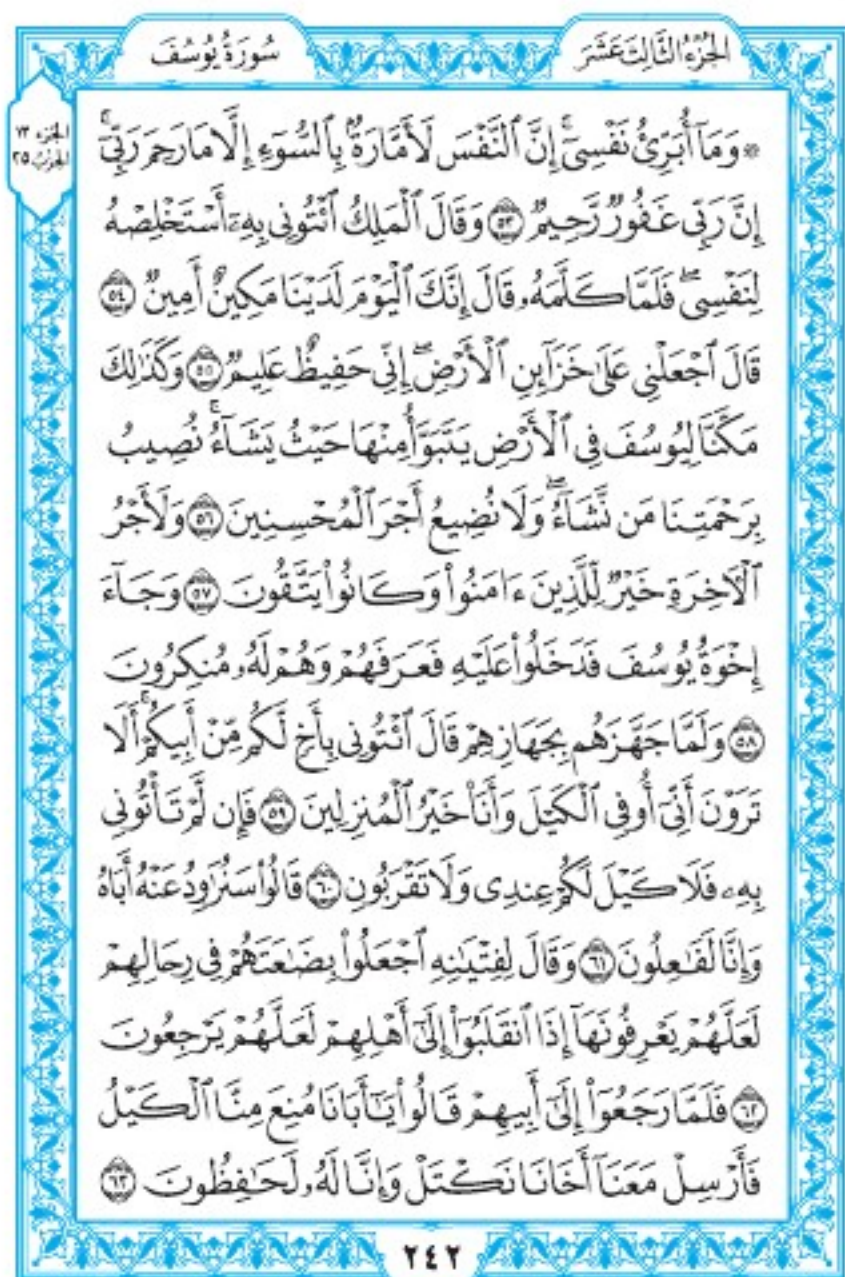 الجُزْءُ الثَّالِثَ عَشَرَ
سُورَةُ يُوسُفَ
الجزء ١٣
الحزب ٢٥
۞ وَمَآ أُبَرِّئُ نَفْسِىٓۚ إِنَّ ٱلنَّفْسَ لَأَمَّارَةٌۢ بِٱلسُّوٓءِ إِلَّا مَا رَحِمَ رَبِّىٓۚ
إِنَّ رَبِّى غَفُورٌ رَّحِيمٌ ٥٣ وَقَالَ ٱلْمَلِكُ ٱئْتُونِى بِهِۦٓ أَسْتَخْلِصْهُ
لِنَفْسِىۖ فَلَمَّا كَلَّمَهُۥ قَالَ إِنَّكَ ٱلْيَوْمَ لَدَيْنَا مَكِينٌ أَمِينٌ ٥٤
قَالَ ٱجْعَلْنِى عَلَىٰ خَزَآئِنِ ٱلْأَرْضِۖ إِنِّى حَفِيظٌ عَلِيمٌ ٥٥ وَكَذَٰلِكَ
مَكَّنَّا لِيُوسُفَ فِى ٱلْأَرْضِ يَتَبَوَّأُ مِنْهَا حَيْثُ يَشَآءُۚ نُصِيبُ
بِرَحْمَتِنَا مَن نَّشَآءُۖ وَلَا نُضِيعُ أَجْرَ ٱلْمُحْسِنِينَ ٥٦ وَلَأَجْرُ
ٱلْءَاخِرَةِ خَيْرٌ لِّلَّذِينَ ءَامَنُوا۟ وَكَانُوا۟ يَتَّقُونَ ٥٧ وَجَآءَ
إِخْوَةُ يُوسُفَ فَدَخَلُوا۟ عَلَيْهِ فَعَرَفَهُمْ وَهُمْ لَهُۥ مُنكِرُونَ
٥٨ وَلَمَّا جَهَّزَهُم بِجَهَازِهِمْ قَالَ ٱئْتُونِى بِأَخٍ لَّكُم مِّنْ أَبِيكُمْۚ أَلَا
تَرَوْنَ أَنِّىٓ أُوفِى ٱلْكَيْلَ وَأَنَا۠ خَيْرُ ٱلْمُنزِلِينَ ٥٩ فَإِن لَّمْ تَأْتُونِى
بِهِۦ فَلَا كَيْلَ لَكُمْ عِندِى وَلَا تَقْرَبُونِ ٦٠ قَالُوا۟ سَنُرَٰوِدُ عَنْهُ أَبَاهُ
وَإِنَّا لَفَٰعِلُونَ ٦١ وَقَالَ لِفِتْيَٰنِهِ ٱجْعَلُوا۟ بِضَٰعَتَهُمْ فِى رِحَالِهِمْ
لَعَلَّهُمْ يَعْرِفُونَهَآ إِذَا ٱنقَلَبُوٓا۟ إِلَىٰٓ أَهْلِهِمْ لَعَلَّهُمْ يَرْجِعُونَ
٦٢ فَلَمَّا رَجَعُوٓا۟ إِلَىٰٓ أَبِيهِمْ قَالُوا۟ يَٰٓأَبَانَا مُنِعَ مِنَّا ٱلْكَيْلُ
فَأَرْسِلْ مَعَنَآ أَخَانَا نَكْتَلْ وَإِنَّا لَهُۥ لَحَٰفِظُونَ ٦٣
٢٤٢